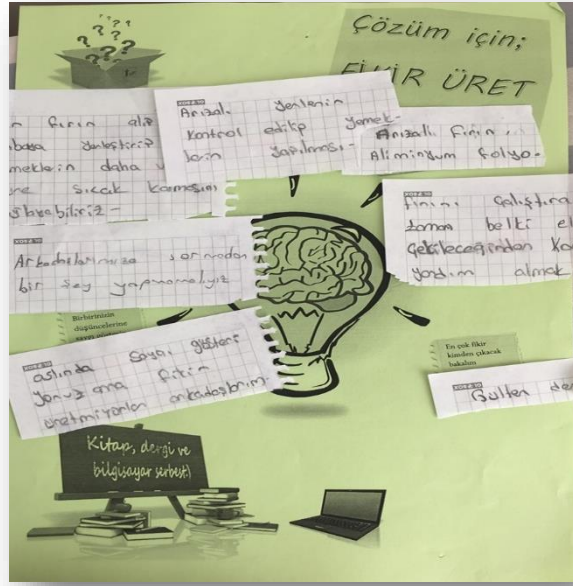 Çözüm için;
FİKİR ÜRET
fırın alıp
daha
sıcak kalmasını
Arızalı yerlerin
kontrol edilip yemek-
lerin yapılması-
Arızalı fırın
Aliminyum folyo-
fırını çalıştıra
zaman belki el
yardım almak
Arkadaşlarımıza sormadan
bir şey yapmamalıyız
Birbirinizin
düşüncelerine
aslında saygı gösteri
yoruz ama fikir
üretmiyorlar arkadaşlarım
En çok fikir
kimden çıkacak
bakalım
Gülten
Kitap, dergi ve
bilgisayar serbest:)